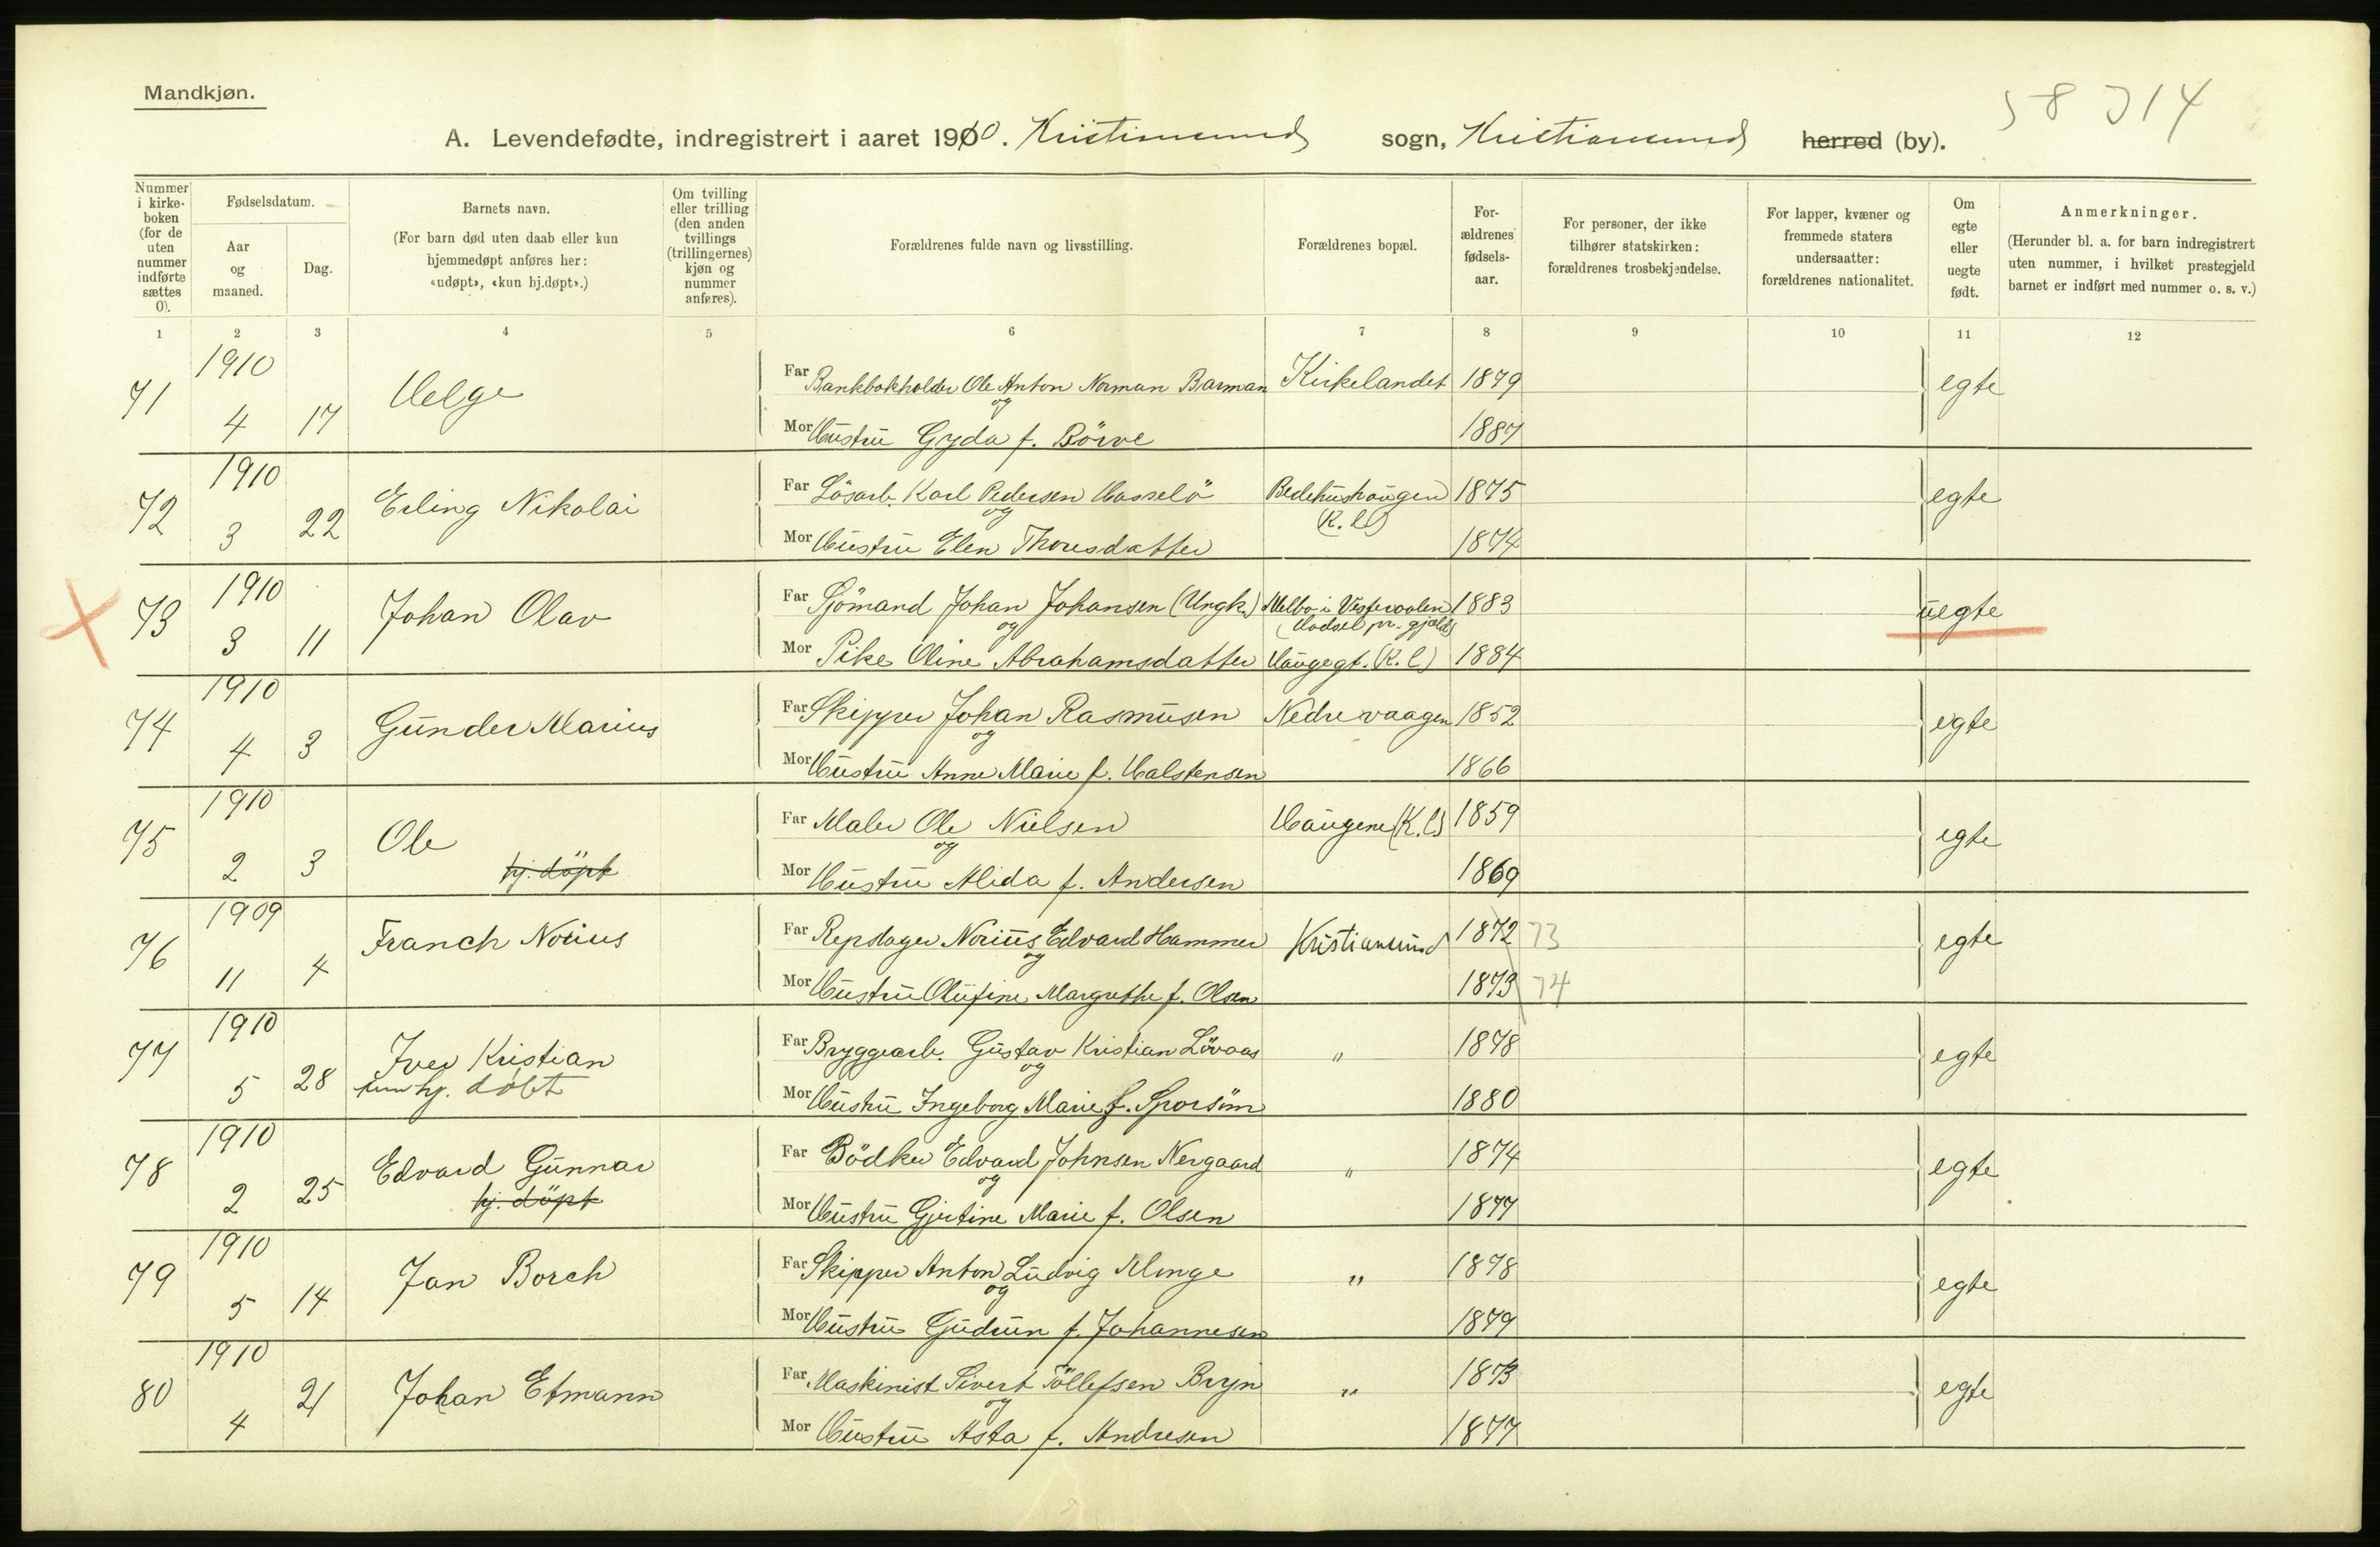 Mandkjøn.
A. Levendefødte, indregistrert i aaret 1910. Kristiansund sogn, Kristiansund herred (by).
Nummer i kirkeboken (for de uten nummer indførte sættes 0).
Fødselsdatum.
Aar og maaned.
Dag.
Barnets navn.
(For barn død uten daab eller kun hjemmedøpt anføres her: «udøpt», «kun hj.døpt».)
Om tvilling eller trilling (den anden tvillings (trillingernes) kjøn og nummer anføres).
Forældrenes fulde navn og livsstilling.
Forældrenes bopæl.
Forældrenes fødselsaar.
For personer, der ikke tilhører statskirken: forældrenes trosbekjendelse.
For lapper, kvæner og fremmede staters undersaatter: forældrenes nationalitet.
Om egte eller uegte født.
Anmerkninger.
(Herunder bl. a. for barn indregistrert uten nummer, i hvilket prestegjeld barnet er indført med nummer o. s. v.)
1 2 3 4 5 6 7 8 9 10 11 12
71 1910 4 17 Helge
Far Bankbokholder Ole Anton Norman Barman Kirkelandet 1879 egte
og
Mor Hustru Gyda f. Börve 1887
72 1910 3 22 Erling Nikolai
Far Lösarb. Karl Pedersen Hasselö Bedehushaugen (K.l.) 1875 egte
og
Mor Hustru Elen Thoresdatter 1874
73 1910 3 11 Johan Olav
Far Sjömand Johan Johansen (Ungk.) Melbo i Vesteraalen (Hadsel pr. gjæld) 1883 uegte
og
Mor Pike Oline Abrahamsdatter Haugegt. (K.l) 1884
74 1910 4 3 Gunder Marius
Far Skipper Johan Rasmusen Nedrevaagen 1852 egte
og
Mor Hustru Anne Marie f. Halstensen 1866
75 1910 2 3 Ole hj. döpt
Far Maler Ole Nielsen Haugene (K.l) 1859 egte
og
Mor Hustru Alida f. Andersen 1869
76 1909 11 4 Franch Norius
Far Repslager Norius Edvard Hammer Kristiansund 1872 73 egte
og
Mor Hustru Olufine Margrethe f. Olsen 1873 74
77 1910 5 28 Iver Kristian
kun hj. döbt
Far Bryggearb. Gustav Kristian Lövaas " 1878 egte
og
Mor Hustru Ingeborg Marie f. Sporsöm 1880
78 1910 2 25 Edvard Gunnar hj. döpt
Far Bödker Edvard Johnsen Nergaard " 1874 egte
og
Mor Hustru Gjertine Marie f. Olsen 1877
79 1910 5 14 Jan Borch
Far Skipper Anton Ludvig Klinge " 1878 egte
og
Mor Hustru Gudrun f. Johannesen 1879
80 1910 4 21 Johan Etmann
Far Maskinist Sivert Töllefsen Bryn " 1873 egte
og
Mor Hustru Asta f. Andresen 1877